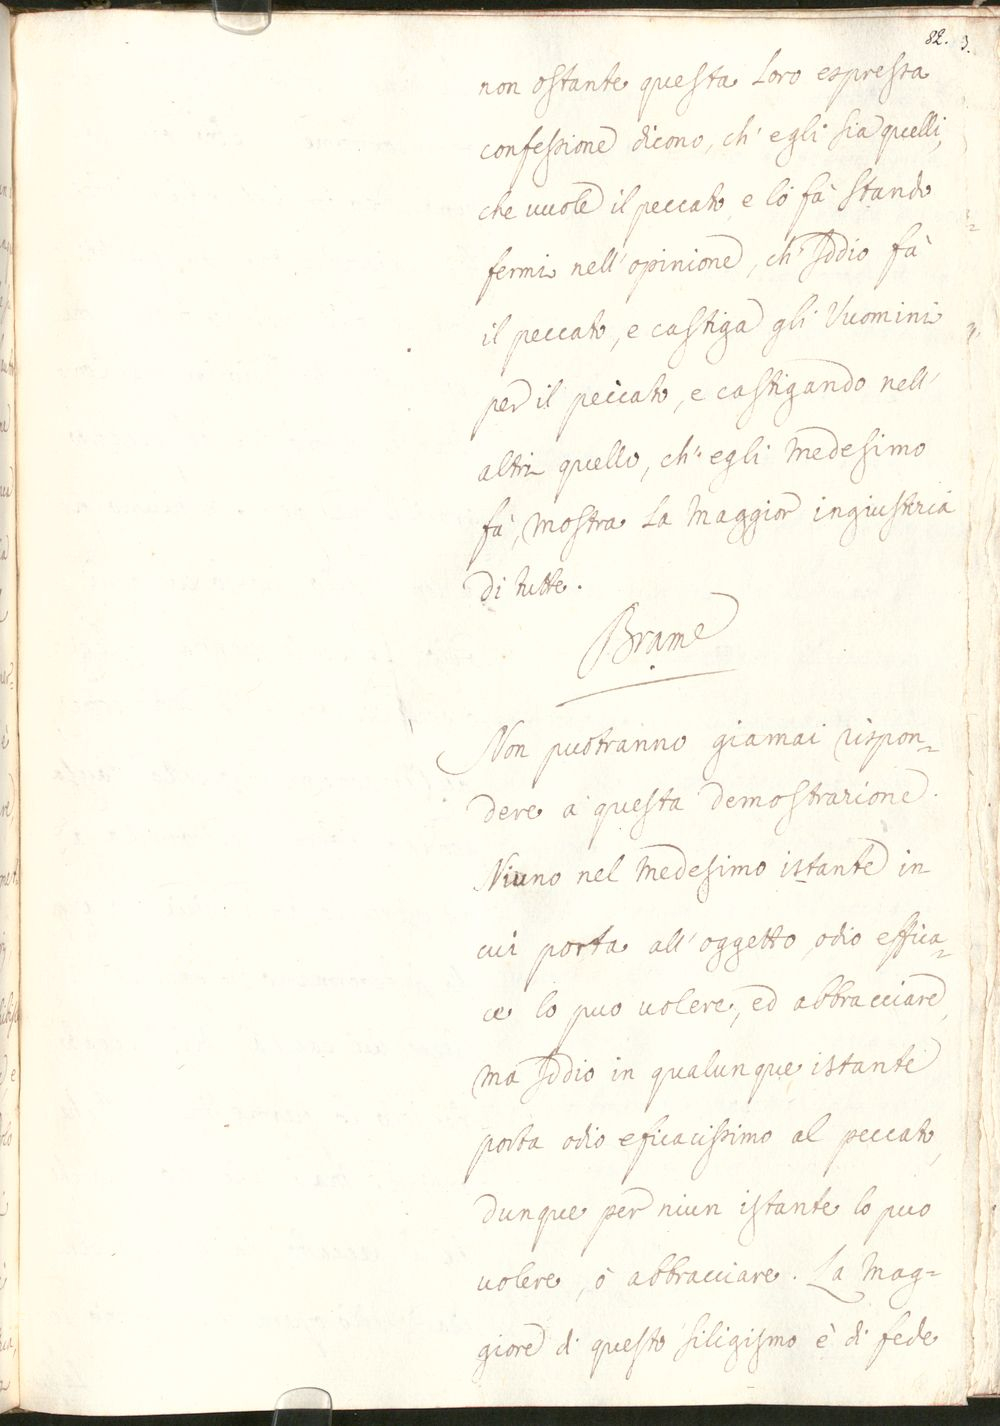 82. 3.
non ostante questa loro espressa
confessione dicono, ch' egli sia quelli,
che vuole il peccato e lo fà stando
fermi nell' opinione, ch' Iddio fà
il peccato, e castiga gli Vuomini
per il peccato, e castigando nell'
altri quello, ch' egli medesimo
fà, mostra la maggior ingiustizia
di tutte.
Brame
Non puotranno giamai rispon=
dere a questa demostrazione.
Niuno nel medesimo istante in
cui porta all' oggetto odio effica=
ce lo puo volere, ed abbracciare,
ma Iddio in qualunque istante
porta odio eficacissimo al peccato,
dunque per niun istante lo puo
volere, ò abbracciare. La mag=
giore di questo siligismo è di fede